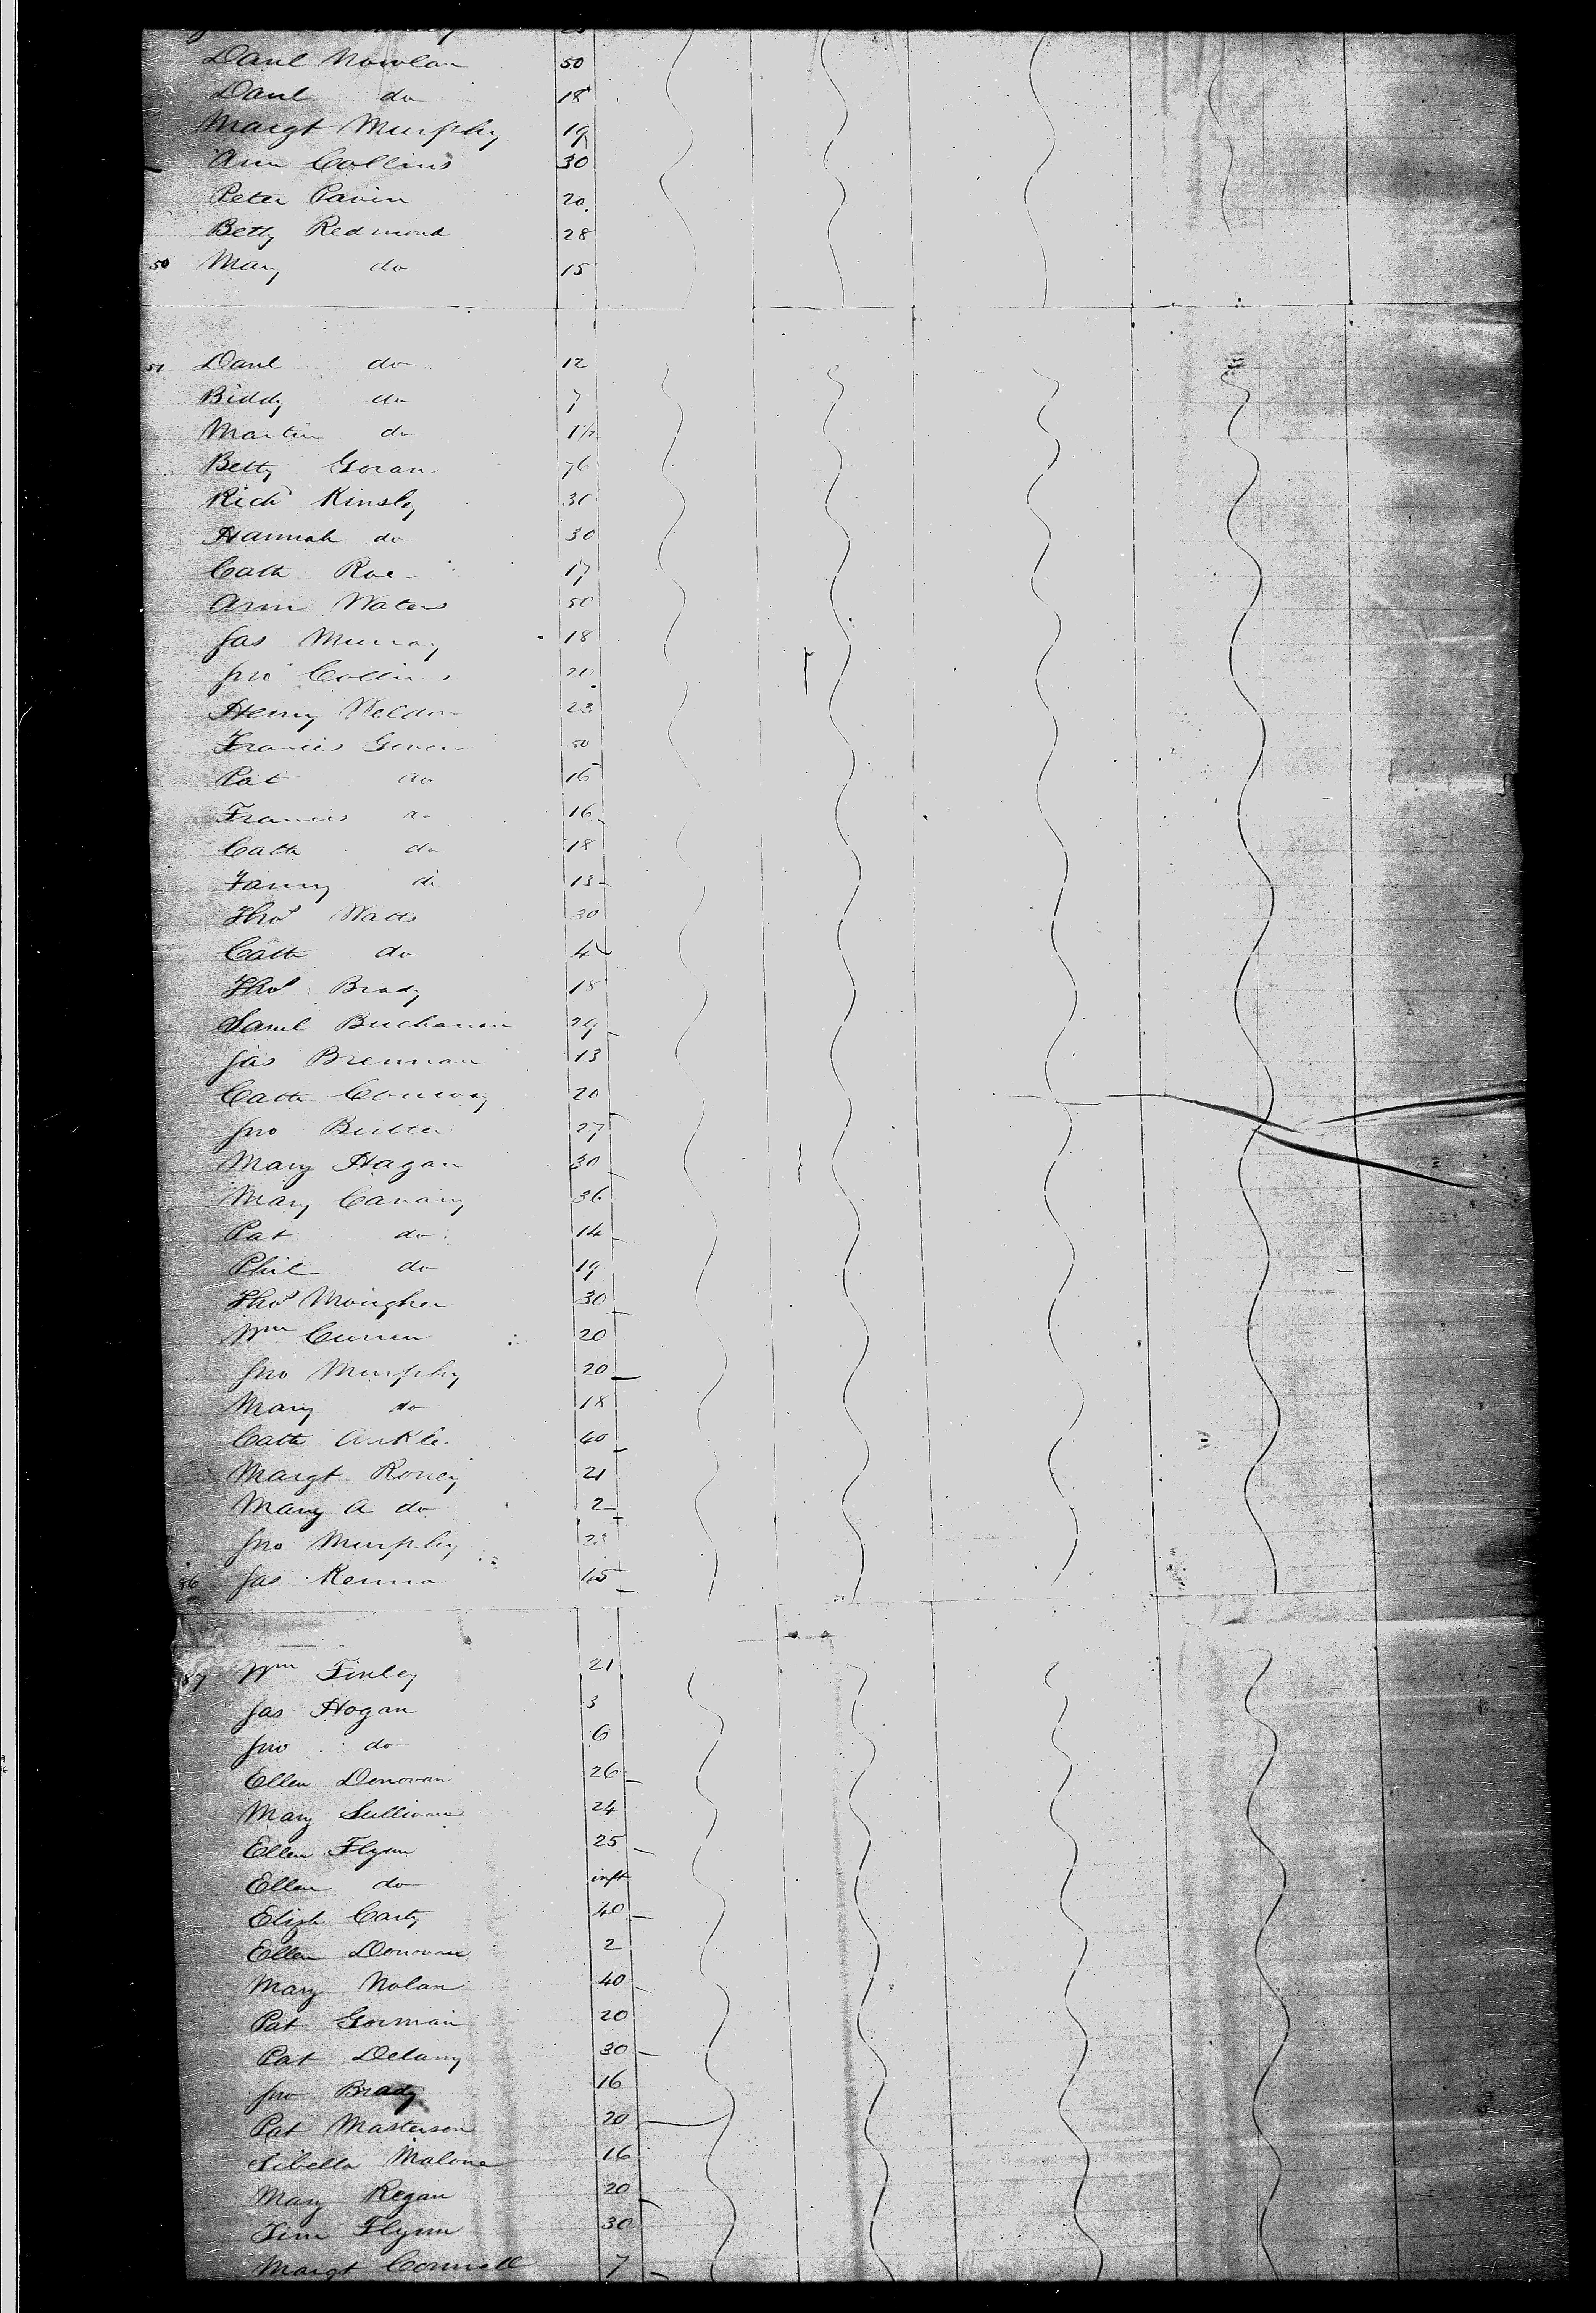 Danl Nowlan 50
Danl do 18
Margt Murphy 19
Ann Collins 30
Peter Pavin 20
Betty Redmond 28
50 Mary do 15
51 Danl do 12
Biddy do 7
Martin do 1 1/2
Betty Goran 76
Richd Kinsley 30
Hannah do 30
Cath Roe 17
Ann Waters 50
Jas Murray 18
Jno Collins 20
Henry Weldon 23
Francis 50
Pat do 16
Francis do 16
Cath do 18
Fanny do 13
Thos Watts 30
Cath do 4
Thos Brady 18
Saml Buchanan 29
Jas Brennan 13
Cath Conway 20
Jno Butter 27
Mary Hagan 30
Mary Canary 36
Pat do 14
Phil do 19
Thos Mougher 30
Wm Curren 20
Jno Murphy 20
Mary do 18
Cath Arkle 40
Margt Roney 21
Mary A do 2
Jno Murphy 23
86 Jas Kenna 45
87 Wm Finley 21
Jas Hogan 3
Jno do 6
Ellen Donovan 26
Mary Sullivan 24
Ellen Flynn 25
Ellen do inft
Elizh Carty 40
Ellen Donovan 2
Mary Nolan 40
Pat Gorman 20
Pat Delany 30
Jno Brady 16
Pat Masterson 20
Sibella Malone 16
Mary Regan 20
Tim Flynn 30
Margt Connell 7